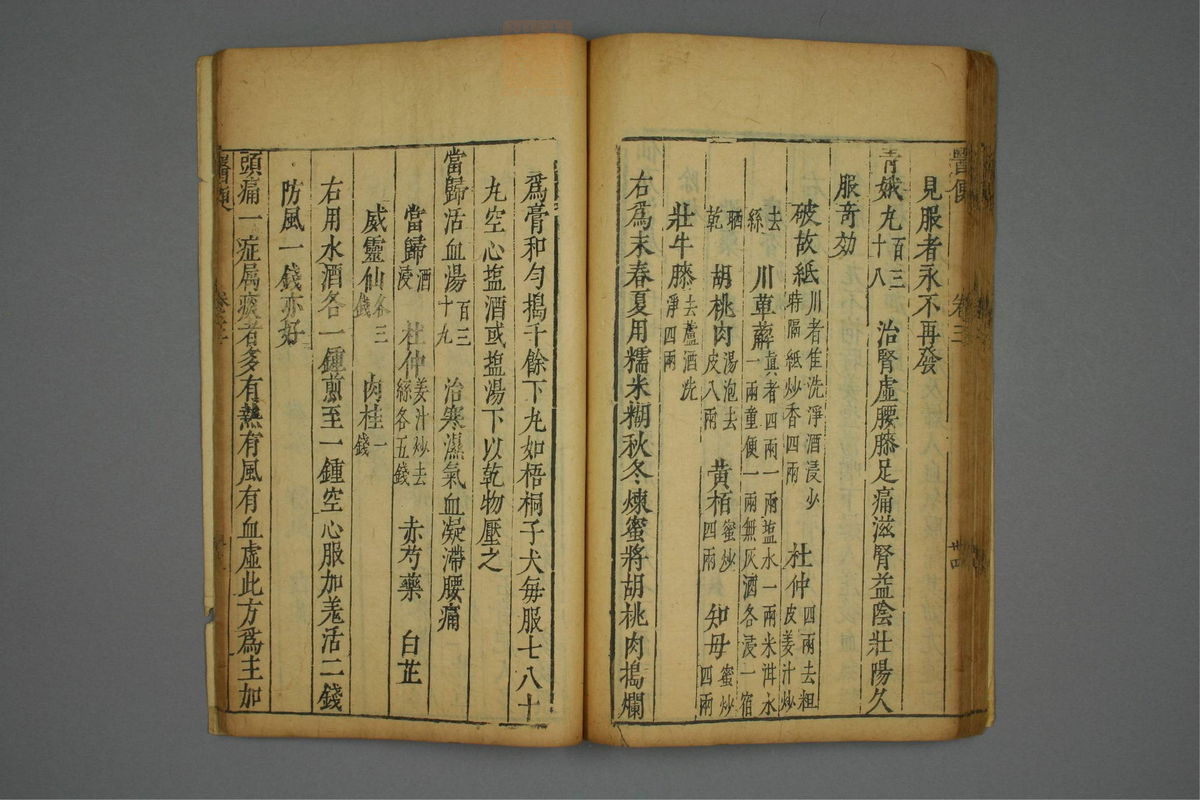 醫便 卷三 廿四
見服者永不再發
青娥丸百三十八 治腎虛腰膝足痛滋腎益陰壯陽久
服奇効
破故紙川者隹洗淨酒浸少時隔紙炒香四兩 杜仲四兩去粗皮姜汁炒
去絲 川萆薢真者四兩一兩塩水一兩米泔水一兩童便一兩無灰酒各浸一宿
晒乾 胡桃肉湯泡去皮八兩 黃栢蜜炒四兩 知母蜜炒四兩
壯牛膝去蘆酒洗淨四兩
右爲末春夏用糯米糊秋冬煉蜜將胡桃肉搗爛
爲膏和勻搗千餘下丸如梧桐子大每服七八十
丸空心塩酒或塩湯下以乾物壓之
當歸活血湯百三十九 治寒濕氣血凝滯腰痛
當歸酒浸 杜仲姜汁炒去絲各五錢 赤芍藥 白芷
威靈仙各三錢 肉桂一錢
右用水酒各一鍾煎至一鍾空心服加羌活二錢
防風一錢亦好
頭痛一症屬痰者多有熱有風有血虛此方爲主加
醫便 卷三